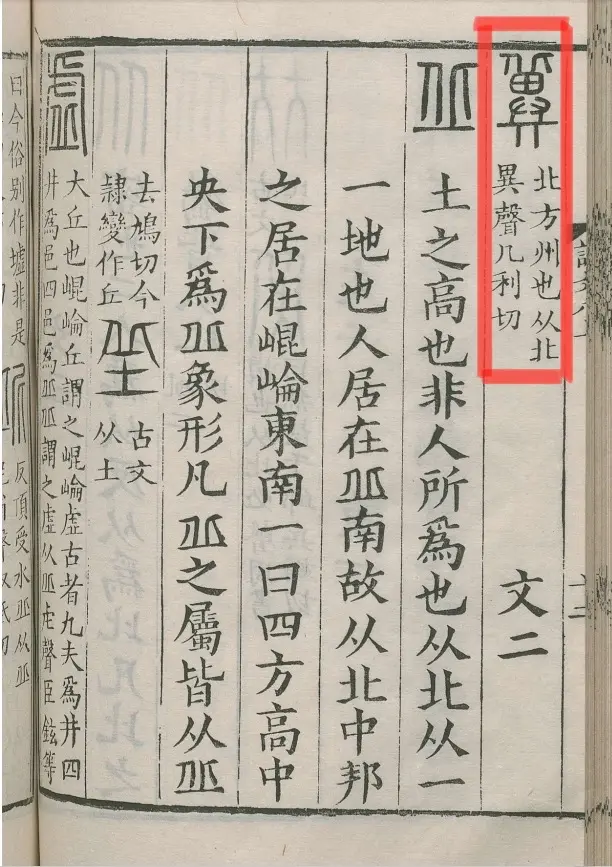 冀
北方州也从北
異聲几利切
文二
丠
土之高也非人所爲也从北从一
一地也人居在丠南故从北中邦
之居在崐崘東南一曰四方高中
央下爲丠象形凡丠之屬皆从丠
去鳩切今
隷變作丘
𡊣
古文
从土
虛
大丘也崐崘丘謂之崐崘虛古者九夫爲井四
井爲邑四邑爲丠丠謂之虛从丠虍聲臣鉉等
曰今俗別作墟非是
反頂受水丠从丠